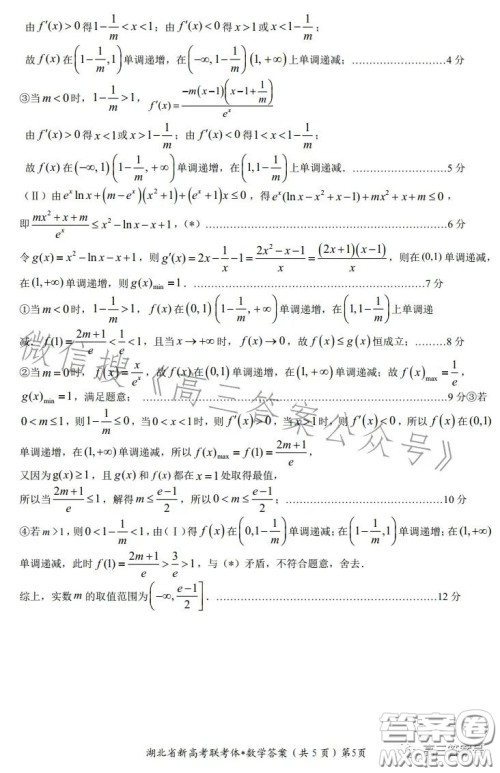 由 f′(x)>0 得 1−1/m<x<1；由 f′(x)<0 得 x>1 或 x<1−1/m；
故 f(x) 在 (1−1/m,1) 单调递增，在 (−∞,1−1/m),(1,+∞) 上单调递减；……4 分
③当 m<0 时，1−1/m>1，f′(x)=−m(x−1)(x−1+1/m)/e^x
由 f′(x)>0 得 x<1 或 x>1−1/m；由 f′(x)<0 得 1<x<1−1/m；
故 f(x) 在 (−∞,1),(1−1/m,+∞) 单调递增，在 (1,1−1/m) 上单调递减．……5 分
（Ⅱ）由 e^x ln x+(m−e^x)(x²+1)+(e^x+1)x≤0，得 e^x(ln x−x²+x−1)+mx²+x+m≤0，
即 (mx²+x+m)/e^x≤x²−ln x−x+1，(*)……6 分
令 g(x)=x²−ln x−x+1，则 g′(x)=2x−1/x−1=(2x²−x−1)/x=(2x+1)(x−1)/x，则在 (0,1) 单调递减，
在 (1,+∞) 单调递增，则 g(x)min=1．……7 分
①当 m<0 时，1−1/m>1，f(x) 在 (0,1),(1−1/m,+∞) 单调递增，在 (1,1−1/m) 上单调递
减，f(1)=(2m+1)/e<1/e<1，且当 x→+∞ 时，f(x)→0，故 f(x)≤g(x) 恒成立；……8 分
②当 m=0 时，f(x)=x/e^x，故 f(x) 在 (0,1) 单调递增，在 (1,+∞) 单调递减；故 f(x)max=1/e，
g(x)min=1，满足题意；……9 分③若
0<m≤1，则 1−1/m≤0，当 0<x<1 时，则 f′(x)>0，当 x>1 时，则 f′(x)<0，所以 f(x) 在 (0,1)
单调递增，在 (1,+∞) 单调递减，所以 f(x)max=f(1)=(2m+1)/e，
又因为 g(x)≥1，且 g(x) 和 f(x) 都在 x=1 处取得最值，
所以当 (2m+1)/e≤1，解得 m≤(e−1)/2，所以 0<m≤(e−1)/2；……10 分
④若 m>1，则 0<1−1/m<1，由（Ⅰ）得 f(x) 在 (0,1−1/m) 单调递减；在 (1−1/m,1) 单调递增；在 (1,+∞)
单调递减，此时 f(1)=(2m+1)/e>3/e>1，与 (*) 矛盾，不符合题意，舍去．
综上，实数 m 的取值范围为 (−∞,(e−1)/2]．……12 分
微信搜《高三答案公众号》
湖北省新高考联考体*数学答案（共 5 页）第5页
答案圈
MXQE.COM